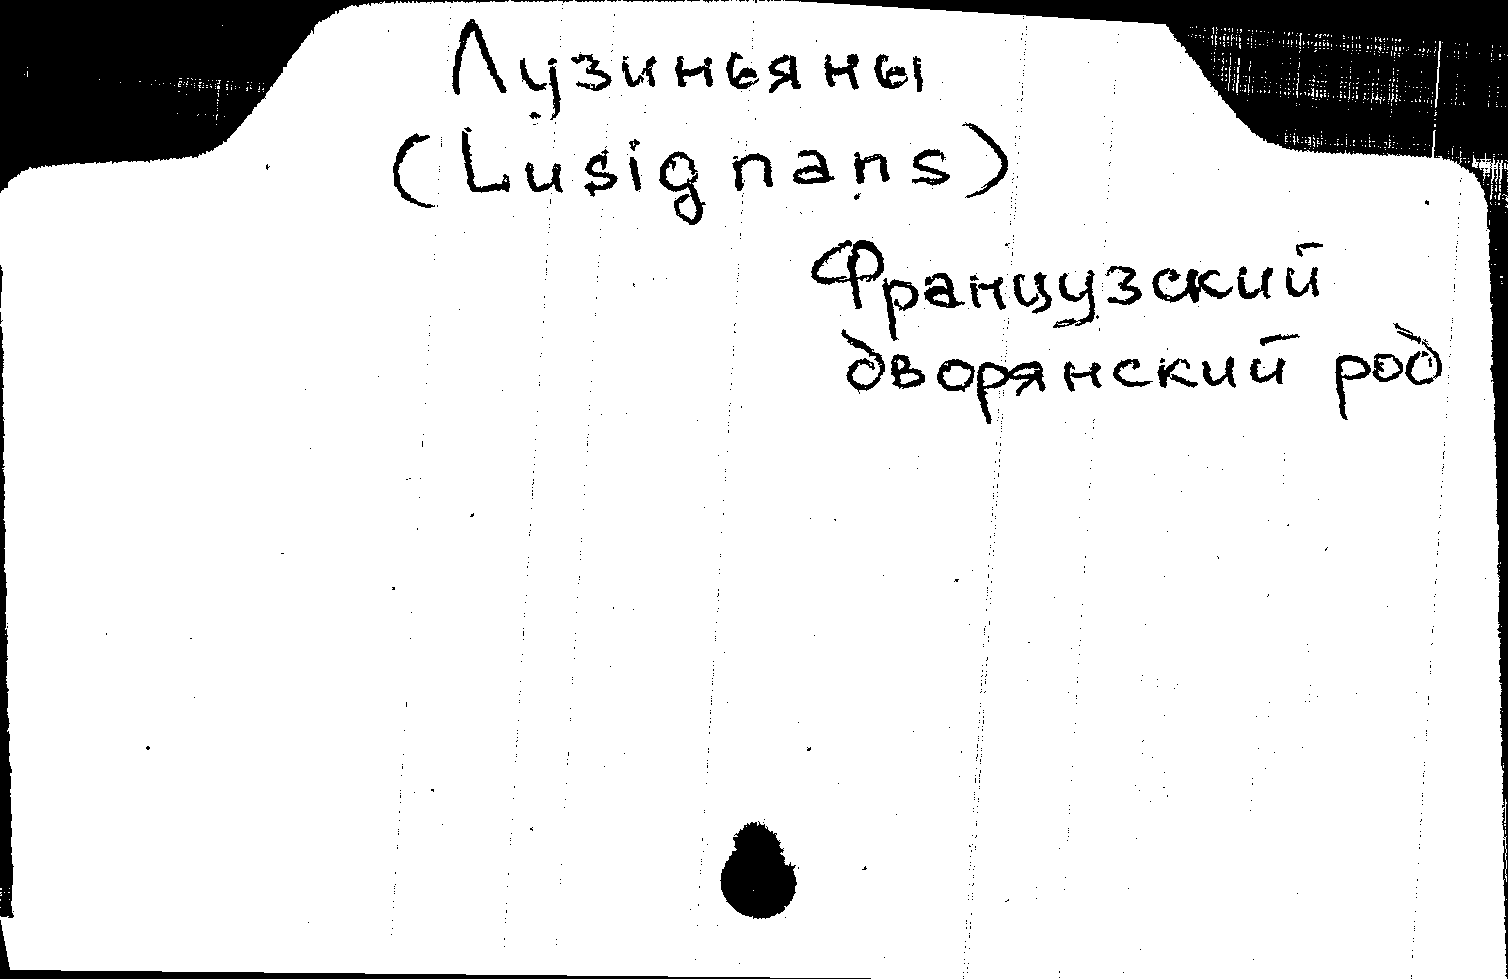 Лузиньяны
(Lusignans)
Французский
дворянский род